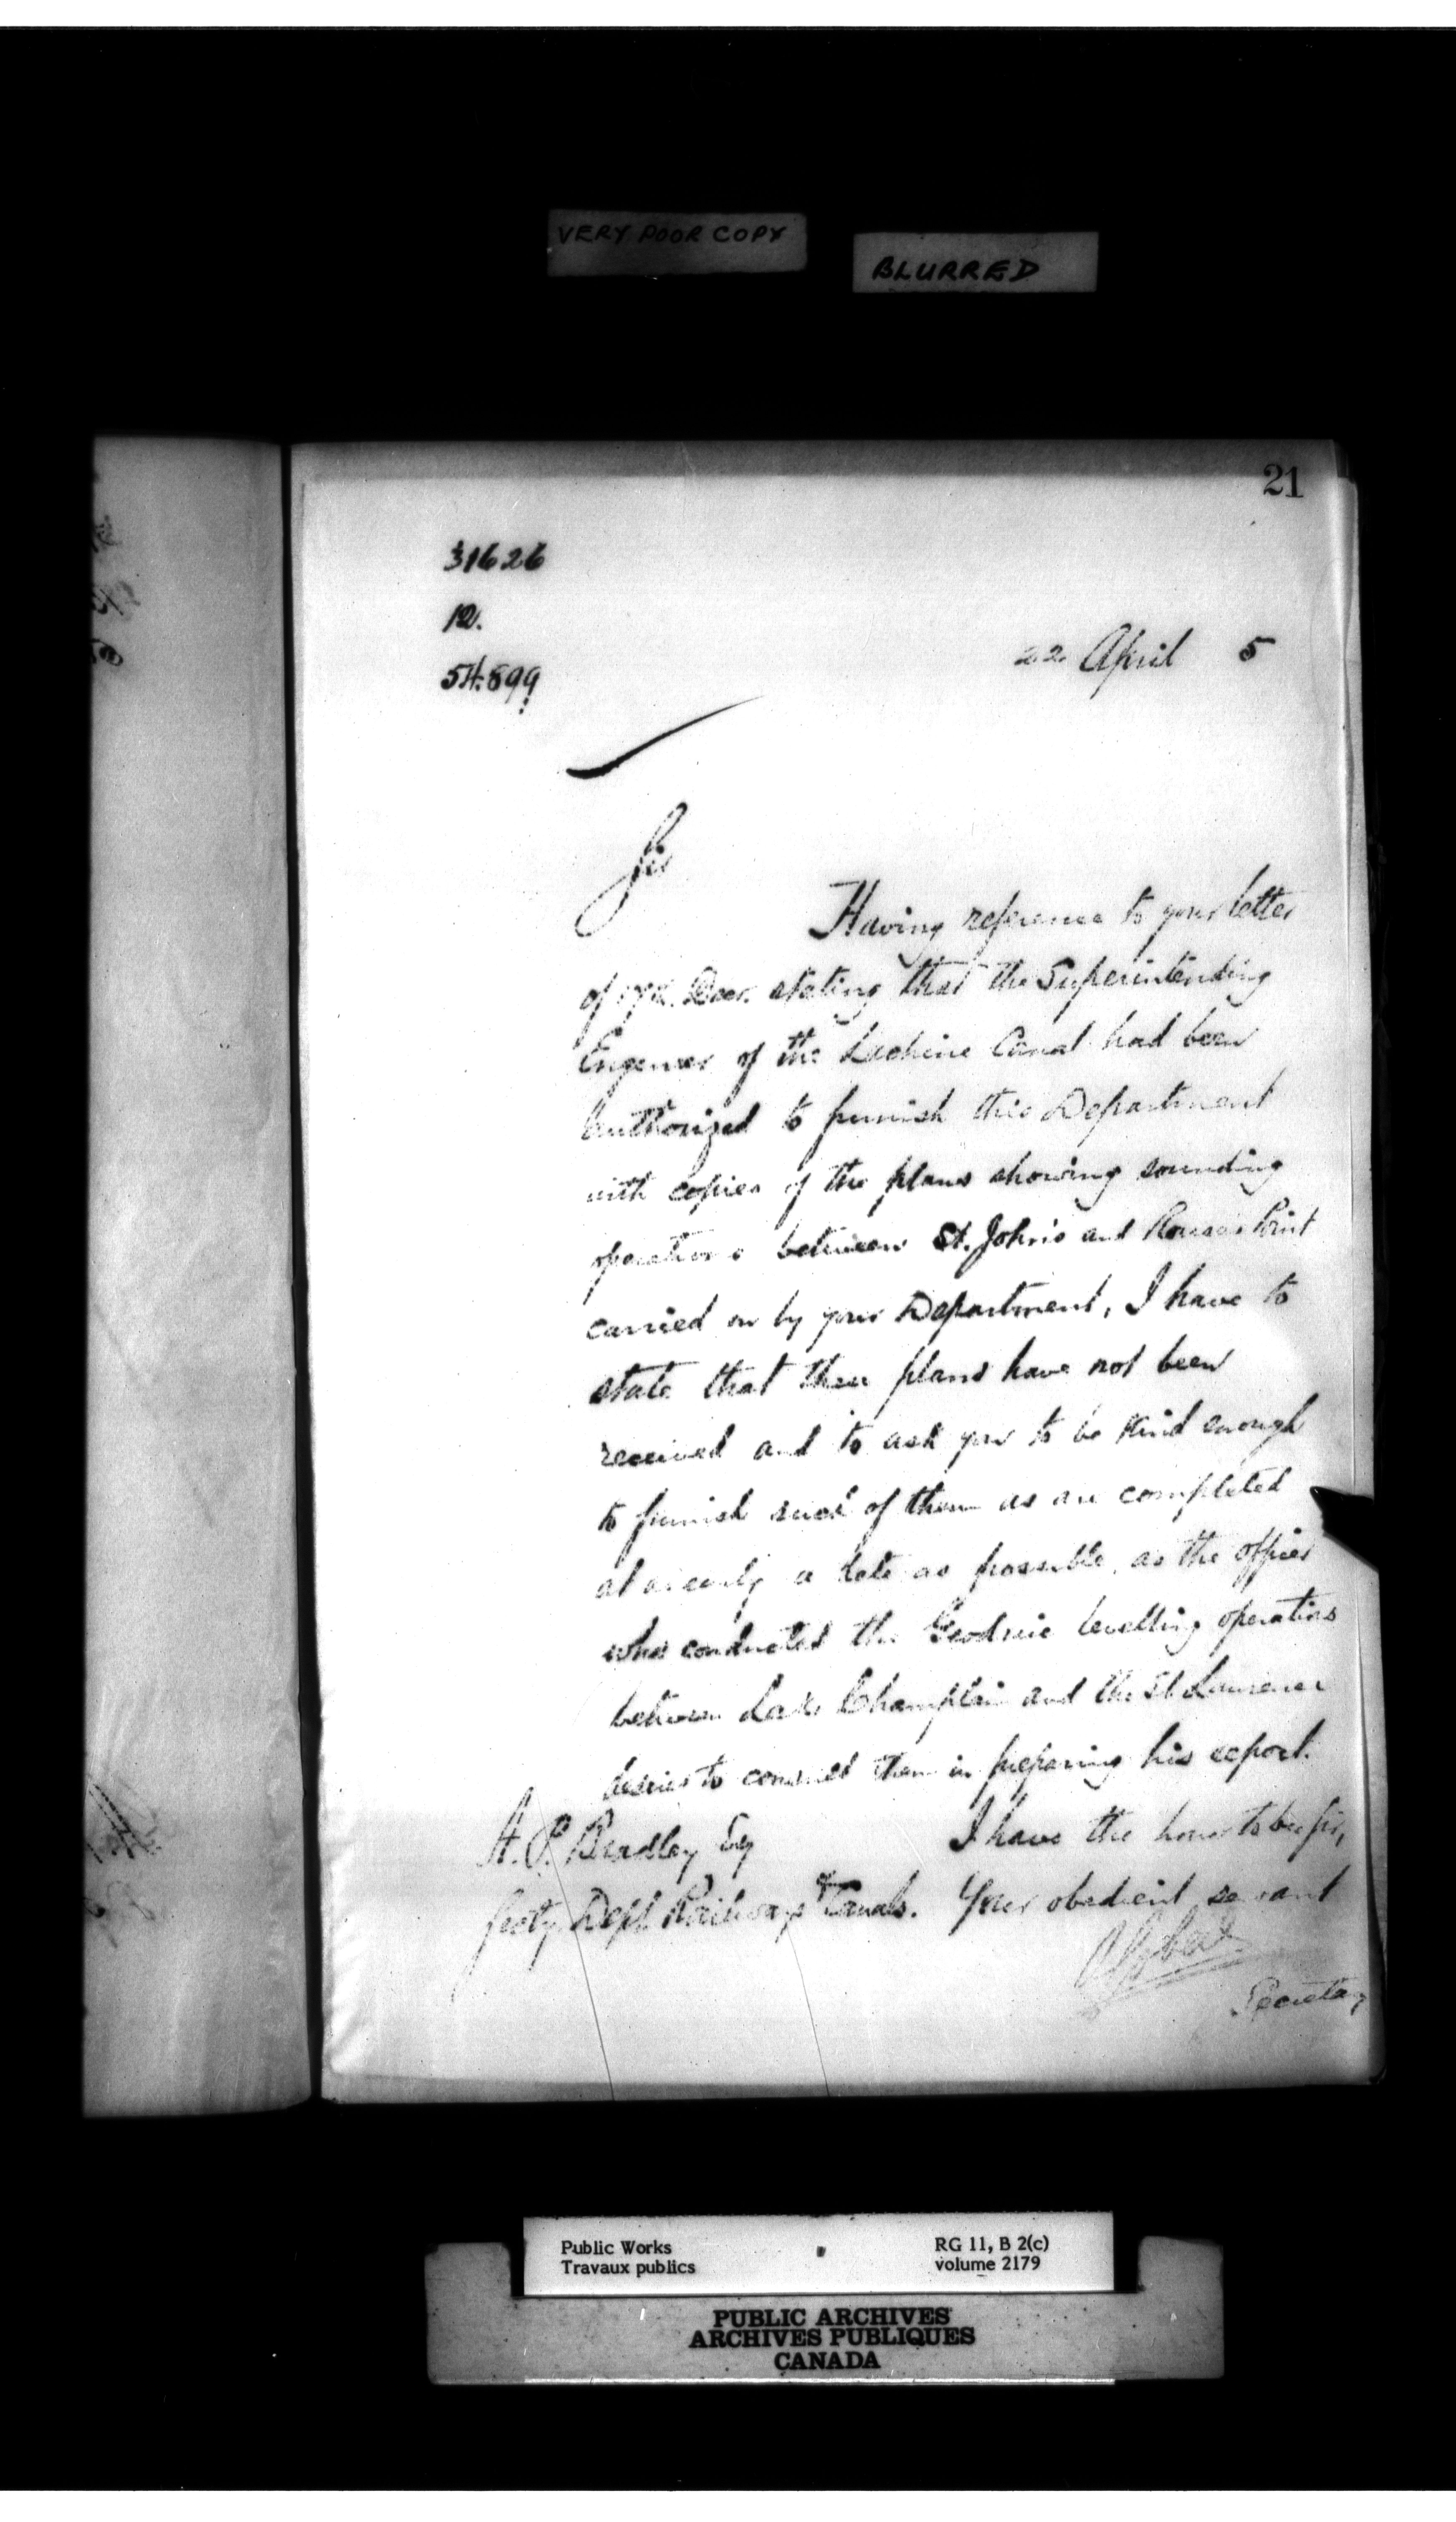 VERY POOR COPY
BLURRED
21
31626
12.
54.899
22 April 5
Sir
Having reference to your letter
of 17th. Decr. stating that the Superintending
Engineer of the Lachine Canal had been
authorized to furnish this Department
with copies of the plans showing sounding
operations between St. John's and Rouses Point
carried on by your Department, I have to
state that these plans have not been
received and to ask you to be kind enough
to furnish such of them as are completed
at as early a date as possible, as the officer
who conducted the Geodesic levelling operations
between Lake Champlain and the St. Lawrence
desires to consult them in preparing his report.
A. P. Bradley Esq I have the honor to be Sir,
Secty. Dept Railways & Canals. Your obedient servant
Secretary
Public Works
Travaux publics
RG 11, B 2(c)
volume 2179
PUBLIC ARCHIVES
ARCHIVES PUBLIQUES
CANADA